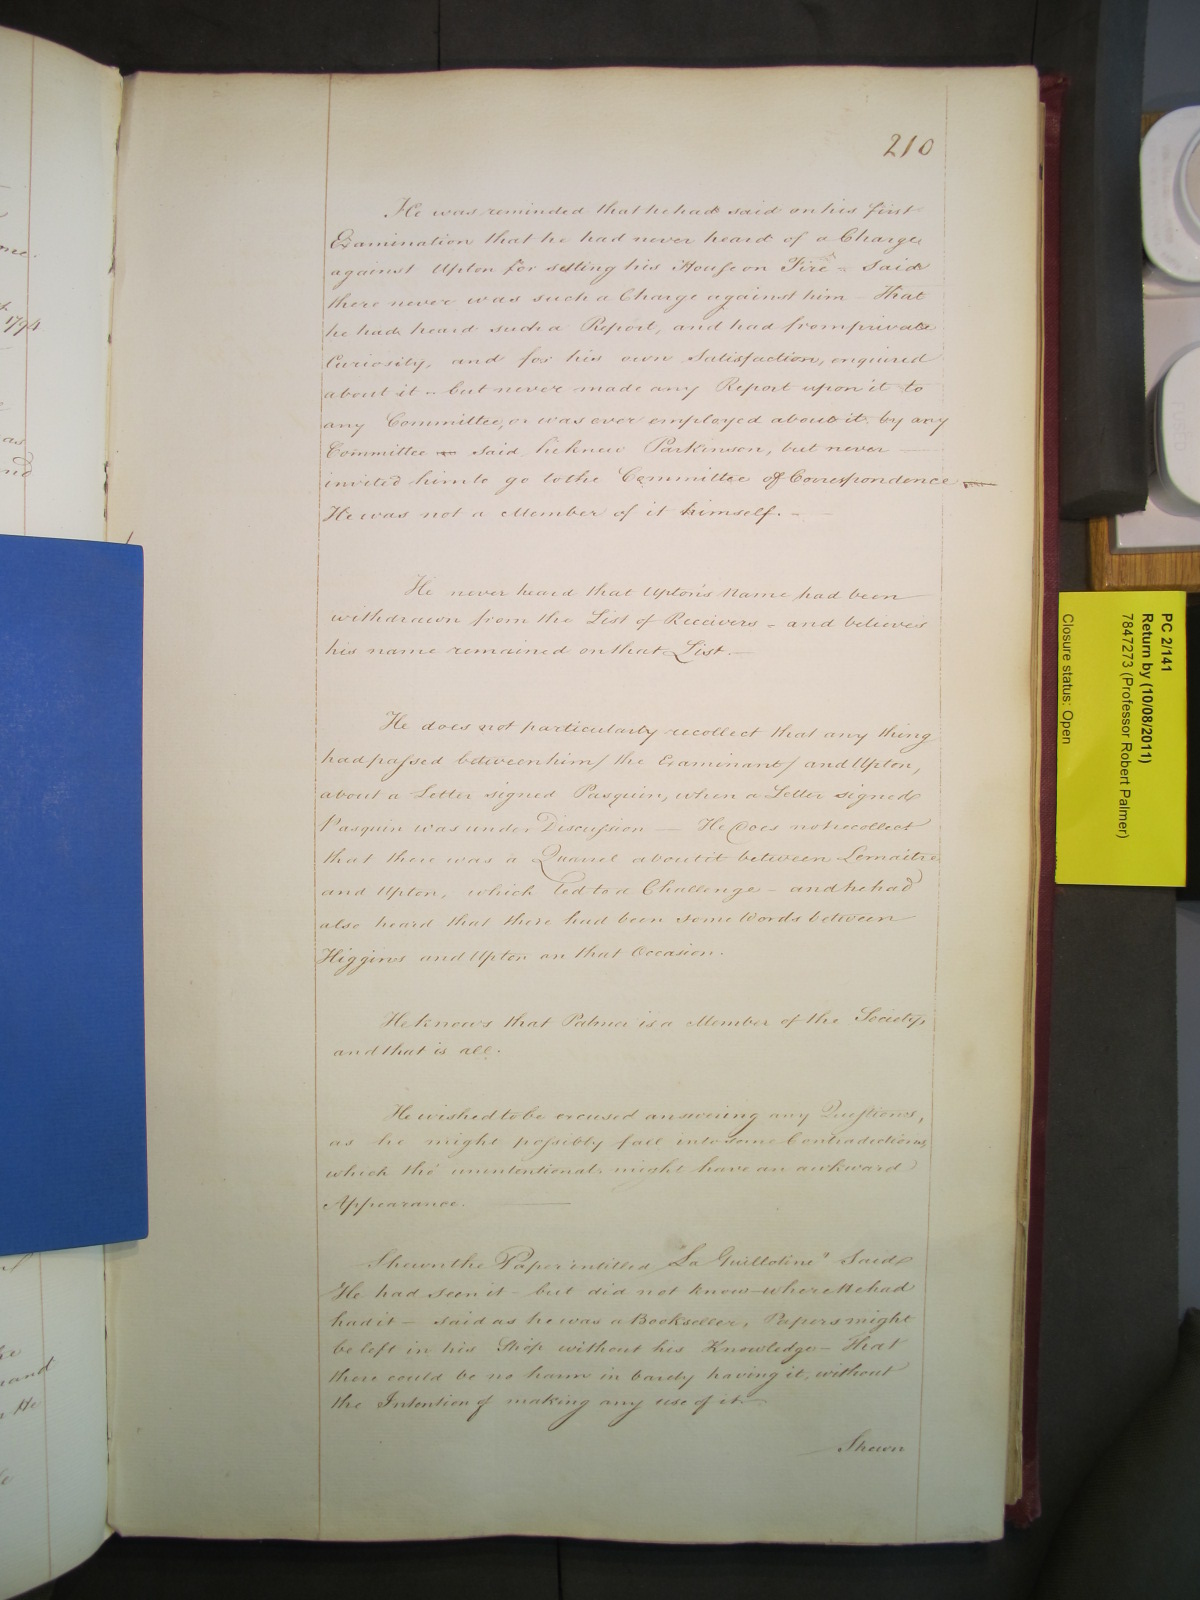 210
He was reminded that he had said on his first
Examination that he had never heard of a Charge
against Upton for setting his House on Fire - Said
there never was such a Charge against him - That
he had heard such a Report, and had from private
Curiosity, and for his own Satisfaction, enquired
about it - but never made any Report upon it to
any Committee, or was ever employed about it by any
Committee - said, he knew Parkinson, but never
invited him to go to the Committee of Correspondence -
He was not a Member of it himself. -
He never heard that Upton's Name had been
withdrawn from the List of Receivers - and believes
his name remained on that List. -
He does not particularly recollect that any thing
had passed between him / the Examinant / and Upton,
about a Letter signed Pasquin, when a Letter signed
Pasquin was under Discussion - He does not recollect
that there was a Quarrel about it between Lemaitre
and Upton, which led to a Challenge - and he had
also heard that there had been some Words between
Higgins and Upton on that Occasion.
He knows that Palmer is a Member of the Society,
and that is all.
He wished to be excused answering any Questions,
as he might possibly fall into some Contradictions,
which tho' unintentional, might have an awkward
Appearance.
Shewn the Paper intitled "La Guillotine" Said
He had seen it - but did not know where He had
had it - said as he was a Bookseller, Papers might
be left in his Shop without his Knowledge - That
there could be no harm in barely having it, without
the Intention of making any use of it -
Shewn
1794
and
PC 2/141
Return by (10/08/2011)
7847273 (Professor Robert Palmer)
Closure status: Open